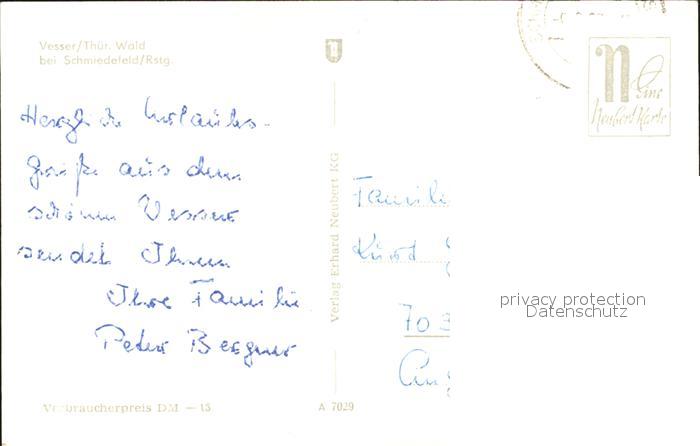 Vesser/Thür. Wald
bei Schmiedefeld/Rstg.
Herzliche Urlaubs-
grüße aus dem
schönen Vesser
sendet Ihnen
Ihre Familie
Peter Bergner
Verbraucherpreis DM —.15
Verlag Erhard Neubert KG
A 7029
N
Eine
Neubert Karte
Familie
Kurt
703
privacy protection
Datenschutz